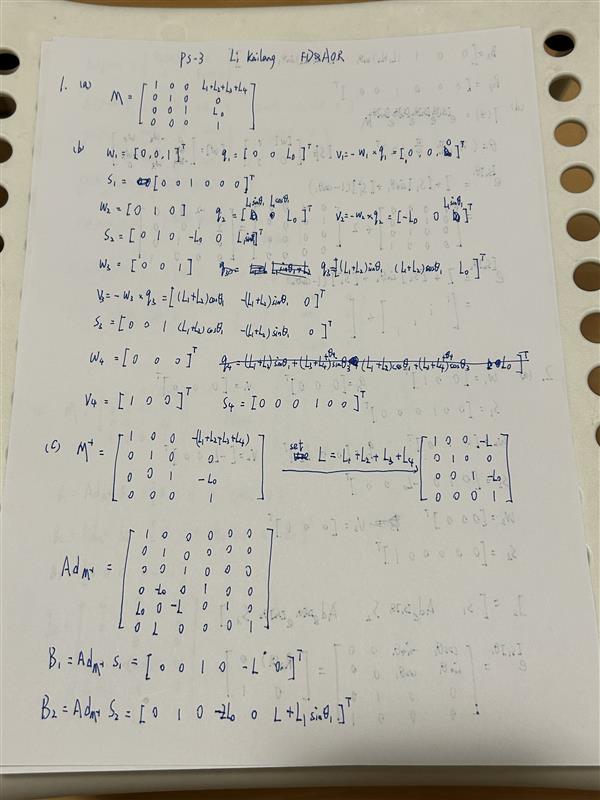 PS-3 Li Kailang
1. (a) M = [ 1 0 0 L1+L2+L3+L4
0 1 0 0
0 0 1 L0
0 0 0 1 ]
(b) W1 = [0, 0, 1]^T q1 = [0 0 L0]^T V1 = -W1 × q1 = [0, 0, 0]^T
S1 = [0 0 1 0 0 0]^T
W2 = [0 1 0] q2 = [L1sinθ1 L1cosθ1 L0]^T V2 = -W2 × q2 = [-L0 0 L1sinθ1]^T
S2 = [0 1 0 -L0 0 L1sinθ1]^T
W3 = [0 0 1] q3 = [(L1+L2)sinθ1 (L1+L2)cosθ1 L0]^T
V3 = -W3 × q3 = [(L1+L2)cosθ1 -(L1+L2)sinθ1 0]^T
S3 = [0 0 1 (L1+L2)cosθ1 -(L1+L2)sinθ1 0]^T
W4 = [0 0 0]^T
V4 = [1 0 0]^T S4 = [0 0 0 1 0 0]^T
(c) M^-1 = [ 1 0 0 -(L1+L2+L3+L4)
0 1 0 0
0 0 1 -L0
0 0 0 1 ]
set L = L1+L2+L3+L4
[ 1 0 0 -L
0 1 0 0
0 0 1 -L0
0 0 0 1 ]
Ad M^-1 = [ 1 0 0 0 0 0
0 1 0 0 0 0
0 0 1 0 0 0
0 -L0 0 1 0 0
L0 0 -L 0 1 0
0 L 0 0 0 1 ]
B1 = Ad M^-1 S1 = [0 0 1 0 -L 0]^T
B2 = Ad M^-1 S2 = [0 1 0 -2L0 0 L+L1sinθ1]^T